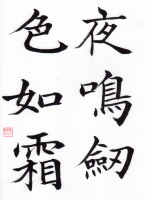 夜鳴劒
色如霜